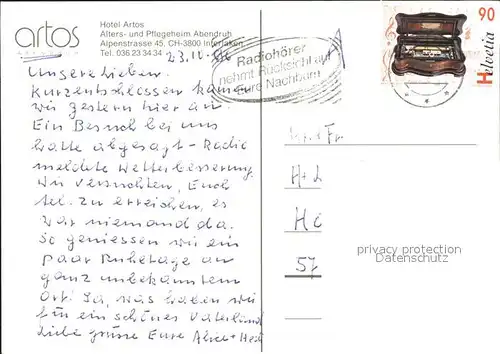 artos
Hotel Artos
Alters- und Pflegeheim Abendruh
Alpenstrasse 45, CH-3800 Interlaken
Tel. 036 23 34 34
Radiohörer
nehmt Rücksicht auf
Eure Nachbarn
90
Helvetia
Unsere Lieben.
Kurzentschlossen kamen
wir gestern hier an.
Ein Besuch bei uns
hatte abgesagt - Radio
meldete Wetterbesserung.
Wir versuchten, Euch
tel. zu erreichen, es
war niemand da.
So geniessen wir ein
paar Ruhetage an
ganz unbekanntem
Ort! Ja, was haben wir
für ein schönes Vaterland
Liebe Grüsse Eure Alice +
H+L
57
privacy protection
Datenschutz